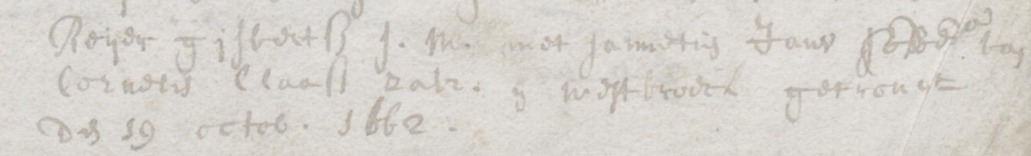 Reijer gijsbertss J. M. met Jannetis Jans van
Cornelis Claass in westbroeck getrouwt
Den 19 octob. 1662.